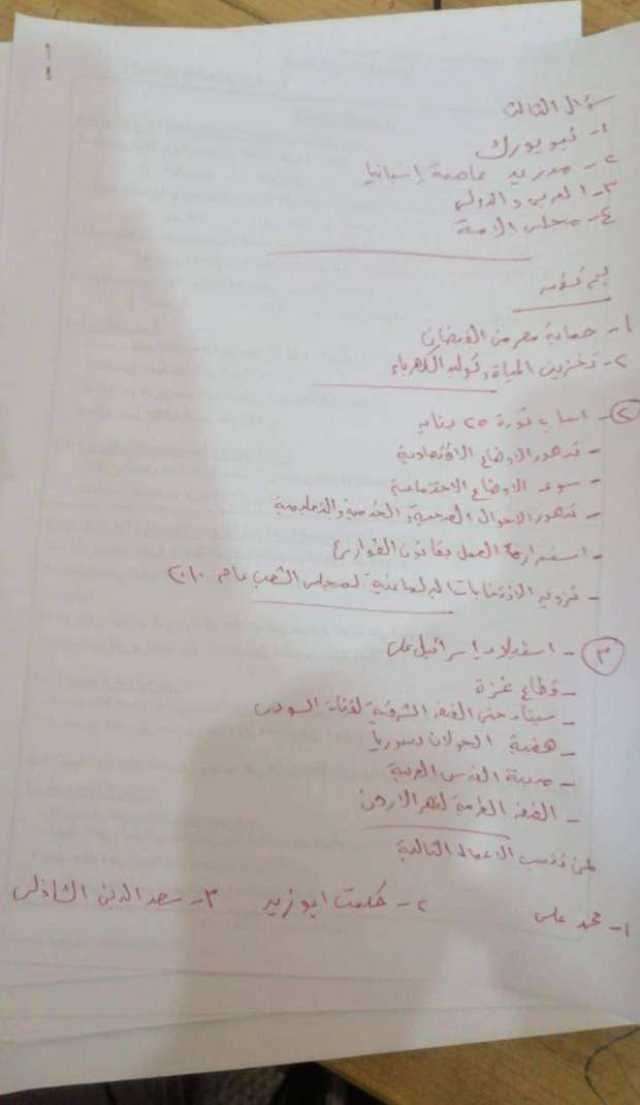 سؤال الثالث
١- نيويورك
٢- مدريد عاصمة إسبانيا
٣- العربى والدولى
٤- مجلس الامة
بم تفسر
١- حماية مصر من الفيضان
٢- تخزين المياة وتوليد الكهرباء
٢- اسباب ثورة ٢٥ يناير
- تدهور الاوضاع الاقتصادية
- سوء الاوضاع الاجتماعية
- تدهور الاحوال الصحية والخدمية والتعليمية
- استمرار العمل بقانون الطوارئ
- تزوير الانتخابات البرلمانية لمجلس الشعب عام ٢٠١٠
٣- استيلاء إسرائيل على
- قطاع غزة
- سيناء حتى الضفة الشرقية لقناة السويس
- هضبة الجولان بسوريا
- مدينة القدس العربية
- الضفة الغربية لنهر الاردن
لمن تنسب الاعمال التالية
١- محمد على ٢- حكمت ابو زيد ٣- سعد الدين الشاذلى